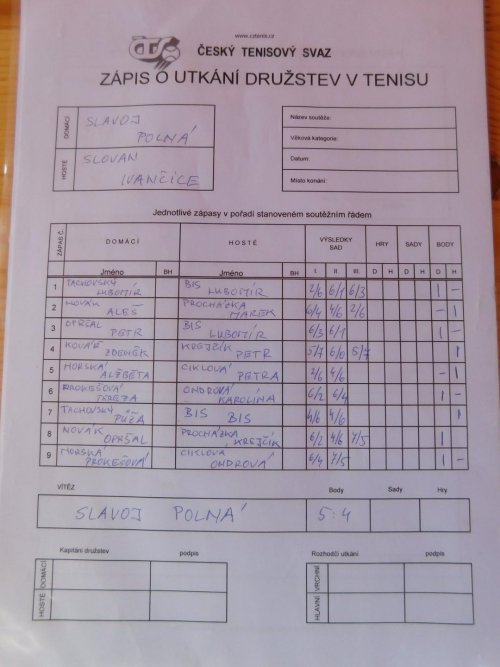 www.cztenis.cz
ČESKÝ TENISOVÝ SVAZ
ZÁPIS O UTKÁNÍ DRUŽSTEV V TENISU
DOMÁCÍ SLAVOJ POLNÁ
HOSTÉ SLOVAN IVANČICE
Název soutěže:
Věková kategorie:
Datum:
Místo konání:
Jednotlivé zápasy v pořadí stanoveném soutěžním řádem
ZÁPAS Č. DOMÁCÍ HOSTÉ VÝSLEDKY SAD HRY SADY BODY
Jméno BH Jméno BH I. II. III. D H D H D H
1 TACHOVSKÝ LUBOMÍR BIS LUBOMÍR 2/6 6/1 6/3 1 –
2 NOVÁK ALEŠ PROCHÁZKA MAREK 6/4 4/6 2/6 – 1
3 OPRŠAL PETR BIS LUBOMÍR 6/3 6/1 1 –
4 KOVÁŘ ZDENĚK KREJČÍK PETR 5/7 6/0 5/7 1
5 HORSKÁ ALŽBĚTA CIKLOVÁ PETRA 2/6 4/6 – 1
6 PROKEŠOVÁ TEREZA ONDROVÁ KAROLÍNA 6/2 6/4 1 –
7 TACHOVSKÝ BIS BIS 4/6 4/6 1
8 NOVÁK OPRŠAL PROCHÁZKA, KREJČÍK 6/2 4/6 7/5 1
9 HORSKÁ PROKEŠOVÁ CIKLOVÁ ONDROVÁ 6/4 7/5 1 –
VÍTĚZ Body Sady Hry
SLAVOJ POLNÁ 5:4
Kapitáni družstev podpis Rozhodčí utkání podpis
DOMÁCÍ VRCHNÍ
HOSTÉ HLAVNÍ